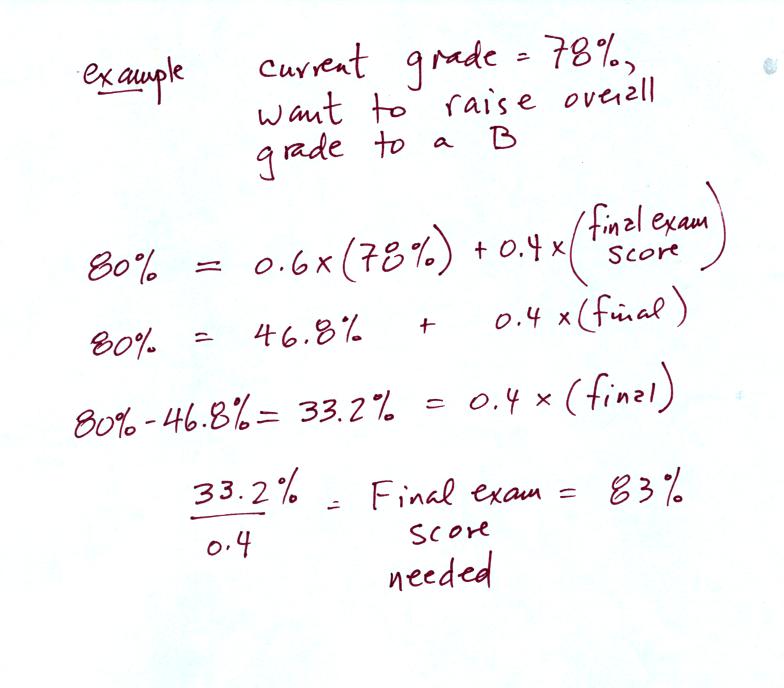 example current grade = 78%,
want to raise overall
grade to a B
80% = 0.6 x (78%) + 0.4 x (final exam score)
80% = 46.8% + 0.4 x (final)
80% - 46.8% = 33.2% = 0.4 x (final)
33.2% / 0.4 = Final exam score needed = 83%